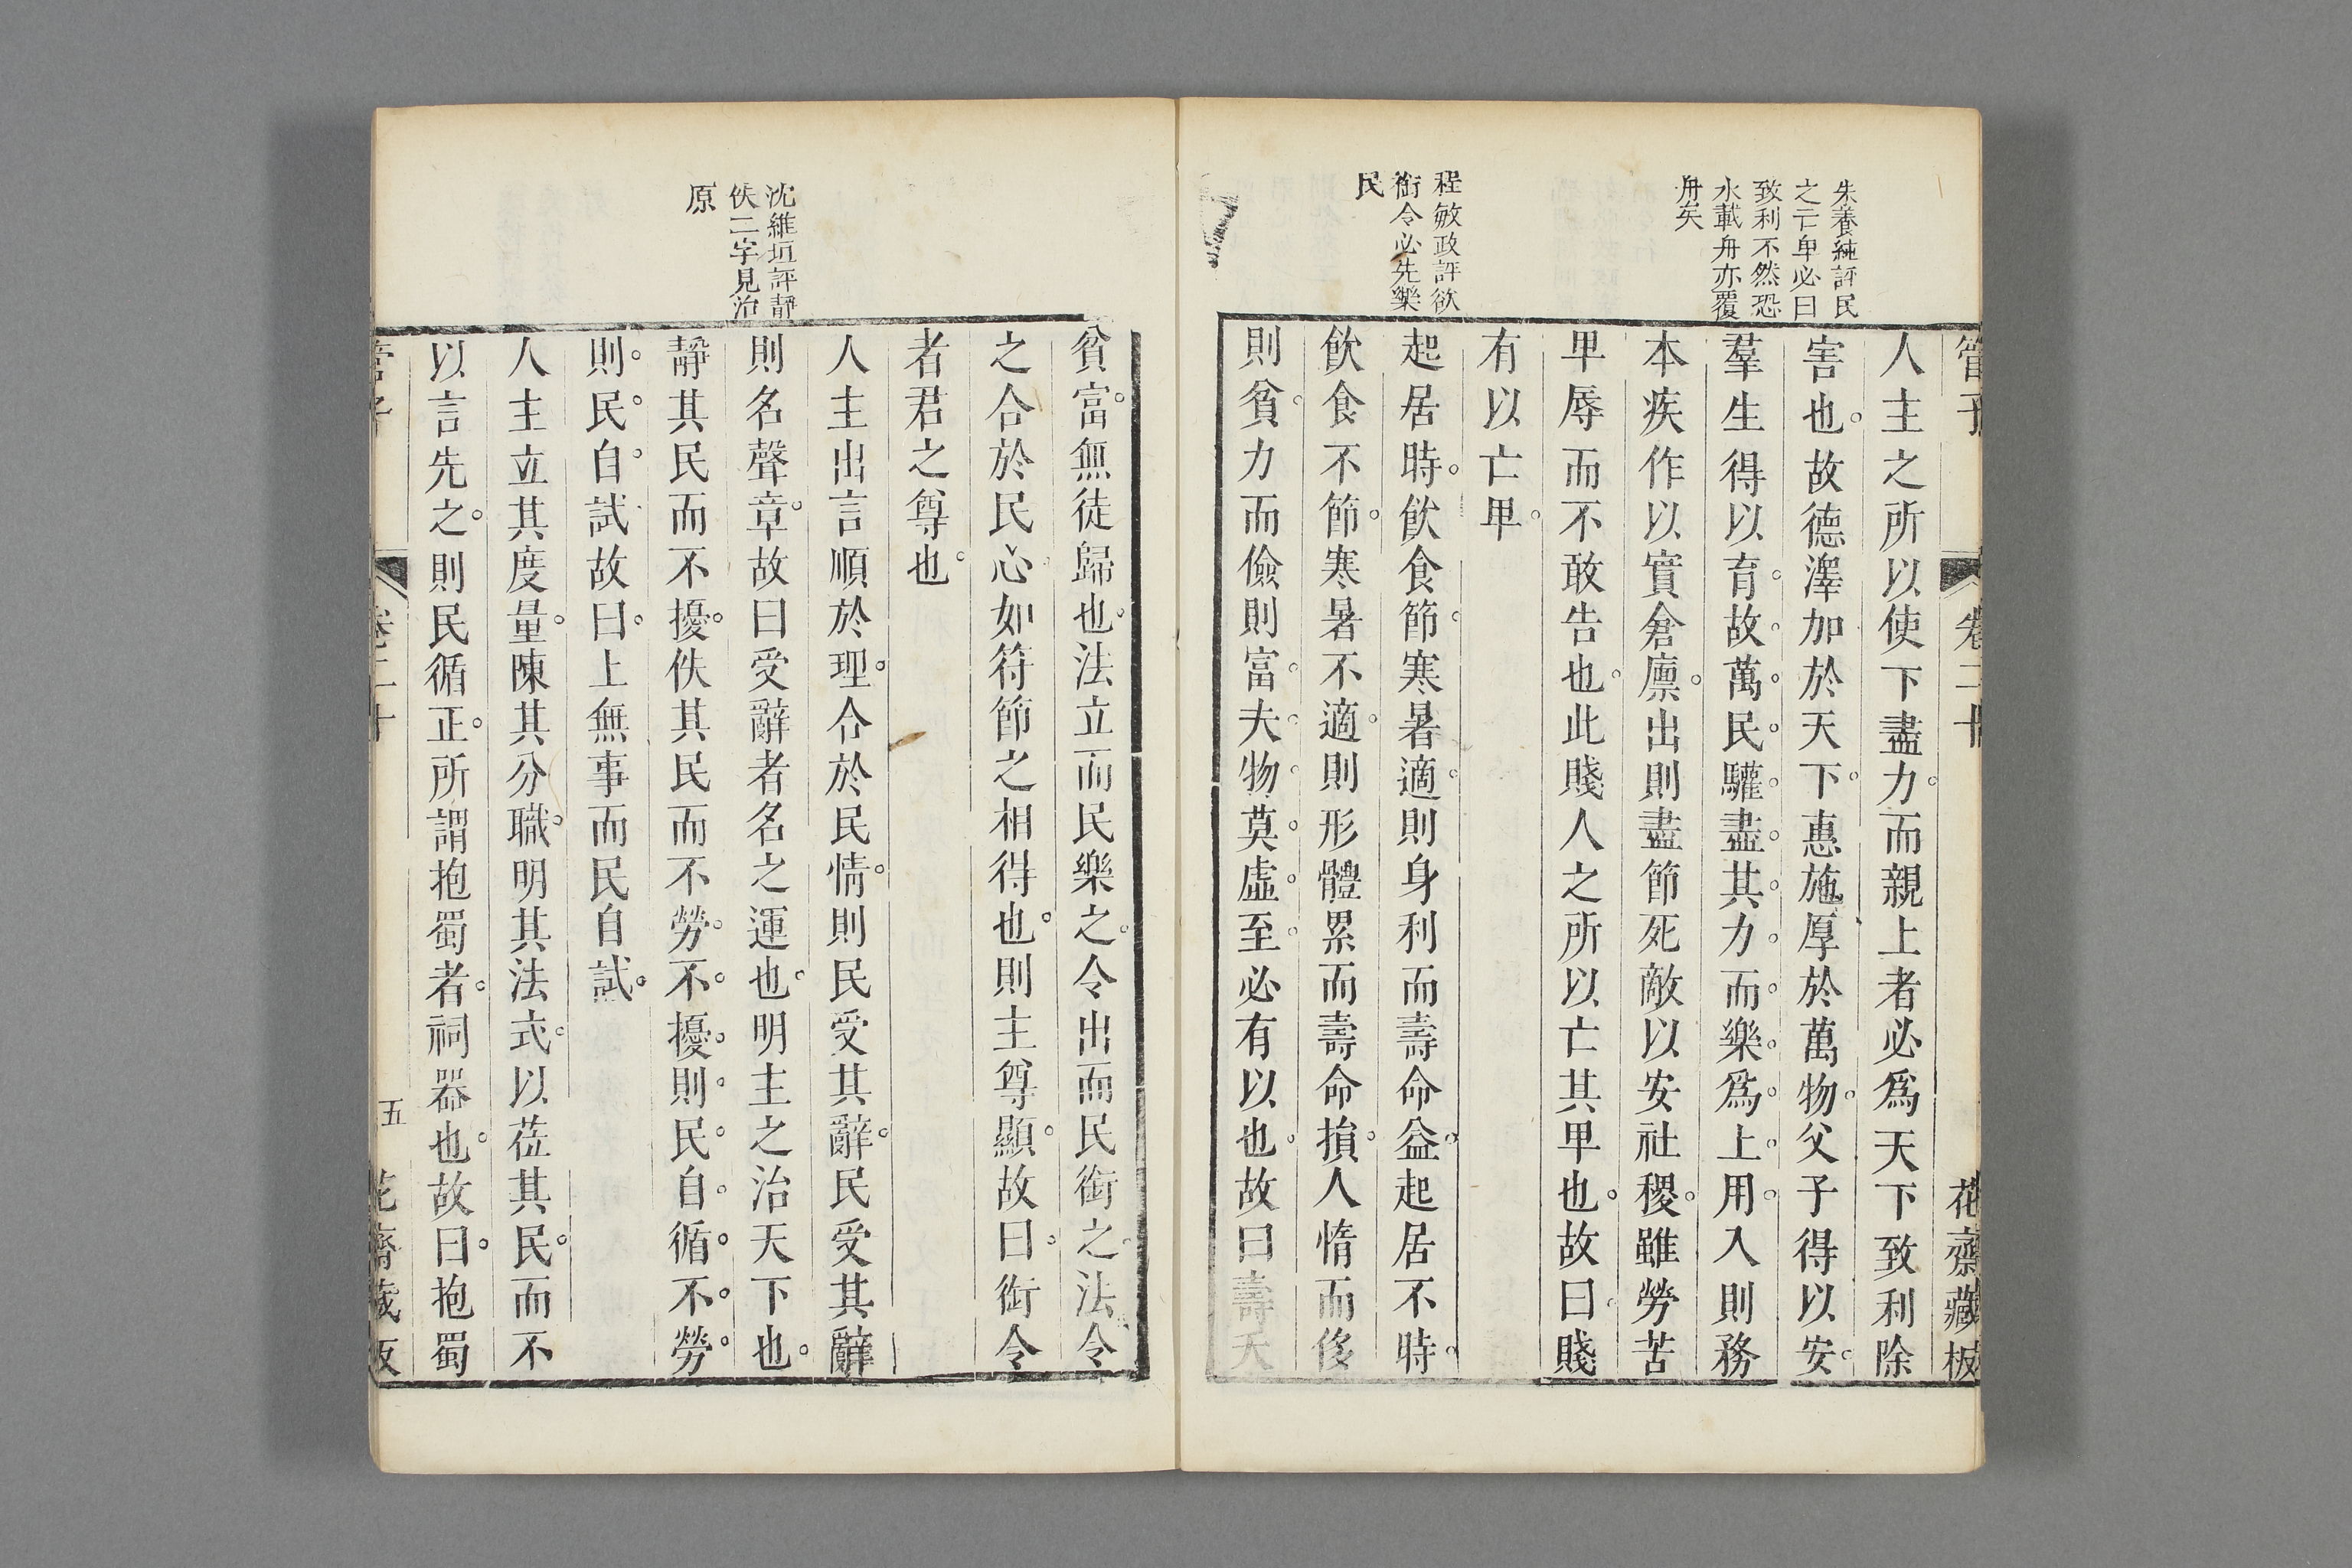 管子
卷二十
花齋藏板
朱養純評民
之亡卑必曰
致利不然恐
水載舟亦覆
舟矣
程敏政評欲
銜令必先樂
民
人主之所以使下盡力而親上者必爲天下致利除
害也故德澤加於天下惠施厚於萬物父子得以安
羣生得以育故萬民驩盡其力而樂爲上用入則務
本疾作以實倉廩出則盡節死敵以安社稷雖勞苦
卑辱而不敢告也此賤人之所以亡其卑也故曰賤
有以亡卑
起居時飲食節寒暑適則身利而壽命益起居不時
飲食不節寒暑不適則形體累而壽命損人惰而侈
則貧力而儉則富夫物莫虛至必有以也故曰壽夭
沈維垣評靜
佚二字見治
原
貧富無徒歸也法立而民樂之令出而民銜之法令
之合於民心如符節之相得也則主尊顯故曰銜令
者君之尊也
人主出言順於理合於民情則民受其辭民受其辭
則名聲章故曰受辭者名之運也明主之治天下也
靜其民而不擾佚其民而不勞不擾則民自循不勞
則民自試故曰上無事而民自試
人主立其度量陳其分職明其法式以莅其民而不
以言先之則民循正所謂抱蜀者祠器也故曰抱蜀
管子
卷二十
五
花齋藏板